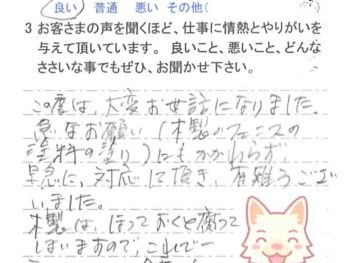 良い 普通 悪い その他( )
3 お客さまの声を聞くほど、仕事に情熱とやりがいを
与えて頂いています。 良いこと、悪いこと、どんな
ささいな事でもぜひ、お聞かせ下さい。
この度は、大変お世話になりました。
急なお願い(木製のフェンスの
塗料の塗り)にもかかわらず、
早急に、対応して頂き、有難うござい
いました。
木製は、ほっておくと腐って
しまいますので、これで一